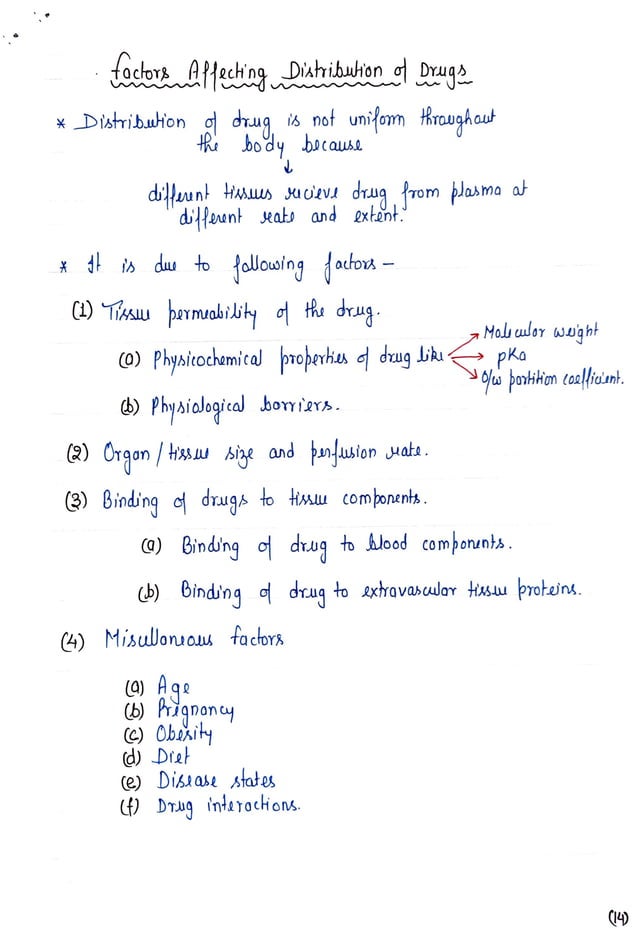 Factors Affecting Distribution of Drugs
* Distribution of drug is not uniform throughout
the body because
↓
different tissues recieve drug from plasma at
different rate and extent.
* It is due to following factors –
(1) Tissue permeability of the drug.
(a) Physicochemical properties of drug like → Molecular weight
→ pKa
→ O/w partition coefficient.
(b) Physiological barriers.
(2) Organ / tissue size and perfusion rate.
(3) Binding of drugs to tissue components.
(a) Binding of drug to blood components.
(b) Binding of drug to extravascular tissue proteins.
(4) Miscellaneous factors
(a) Age
(b) Pregnancy
(c) Obesity
(d) Diet
(e) Disease states
(f) Drug interactions.
(14)